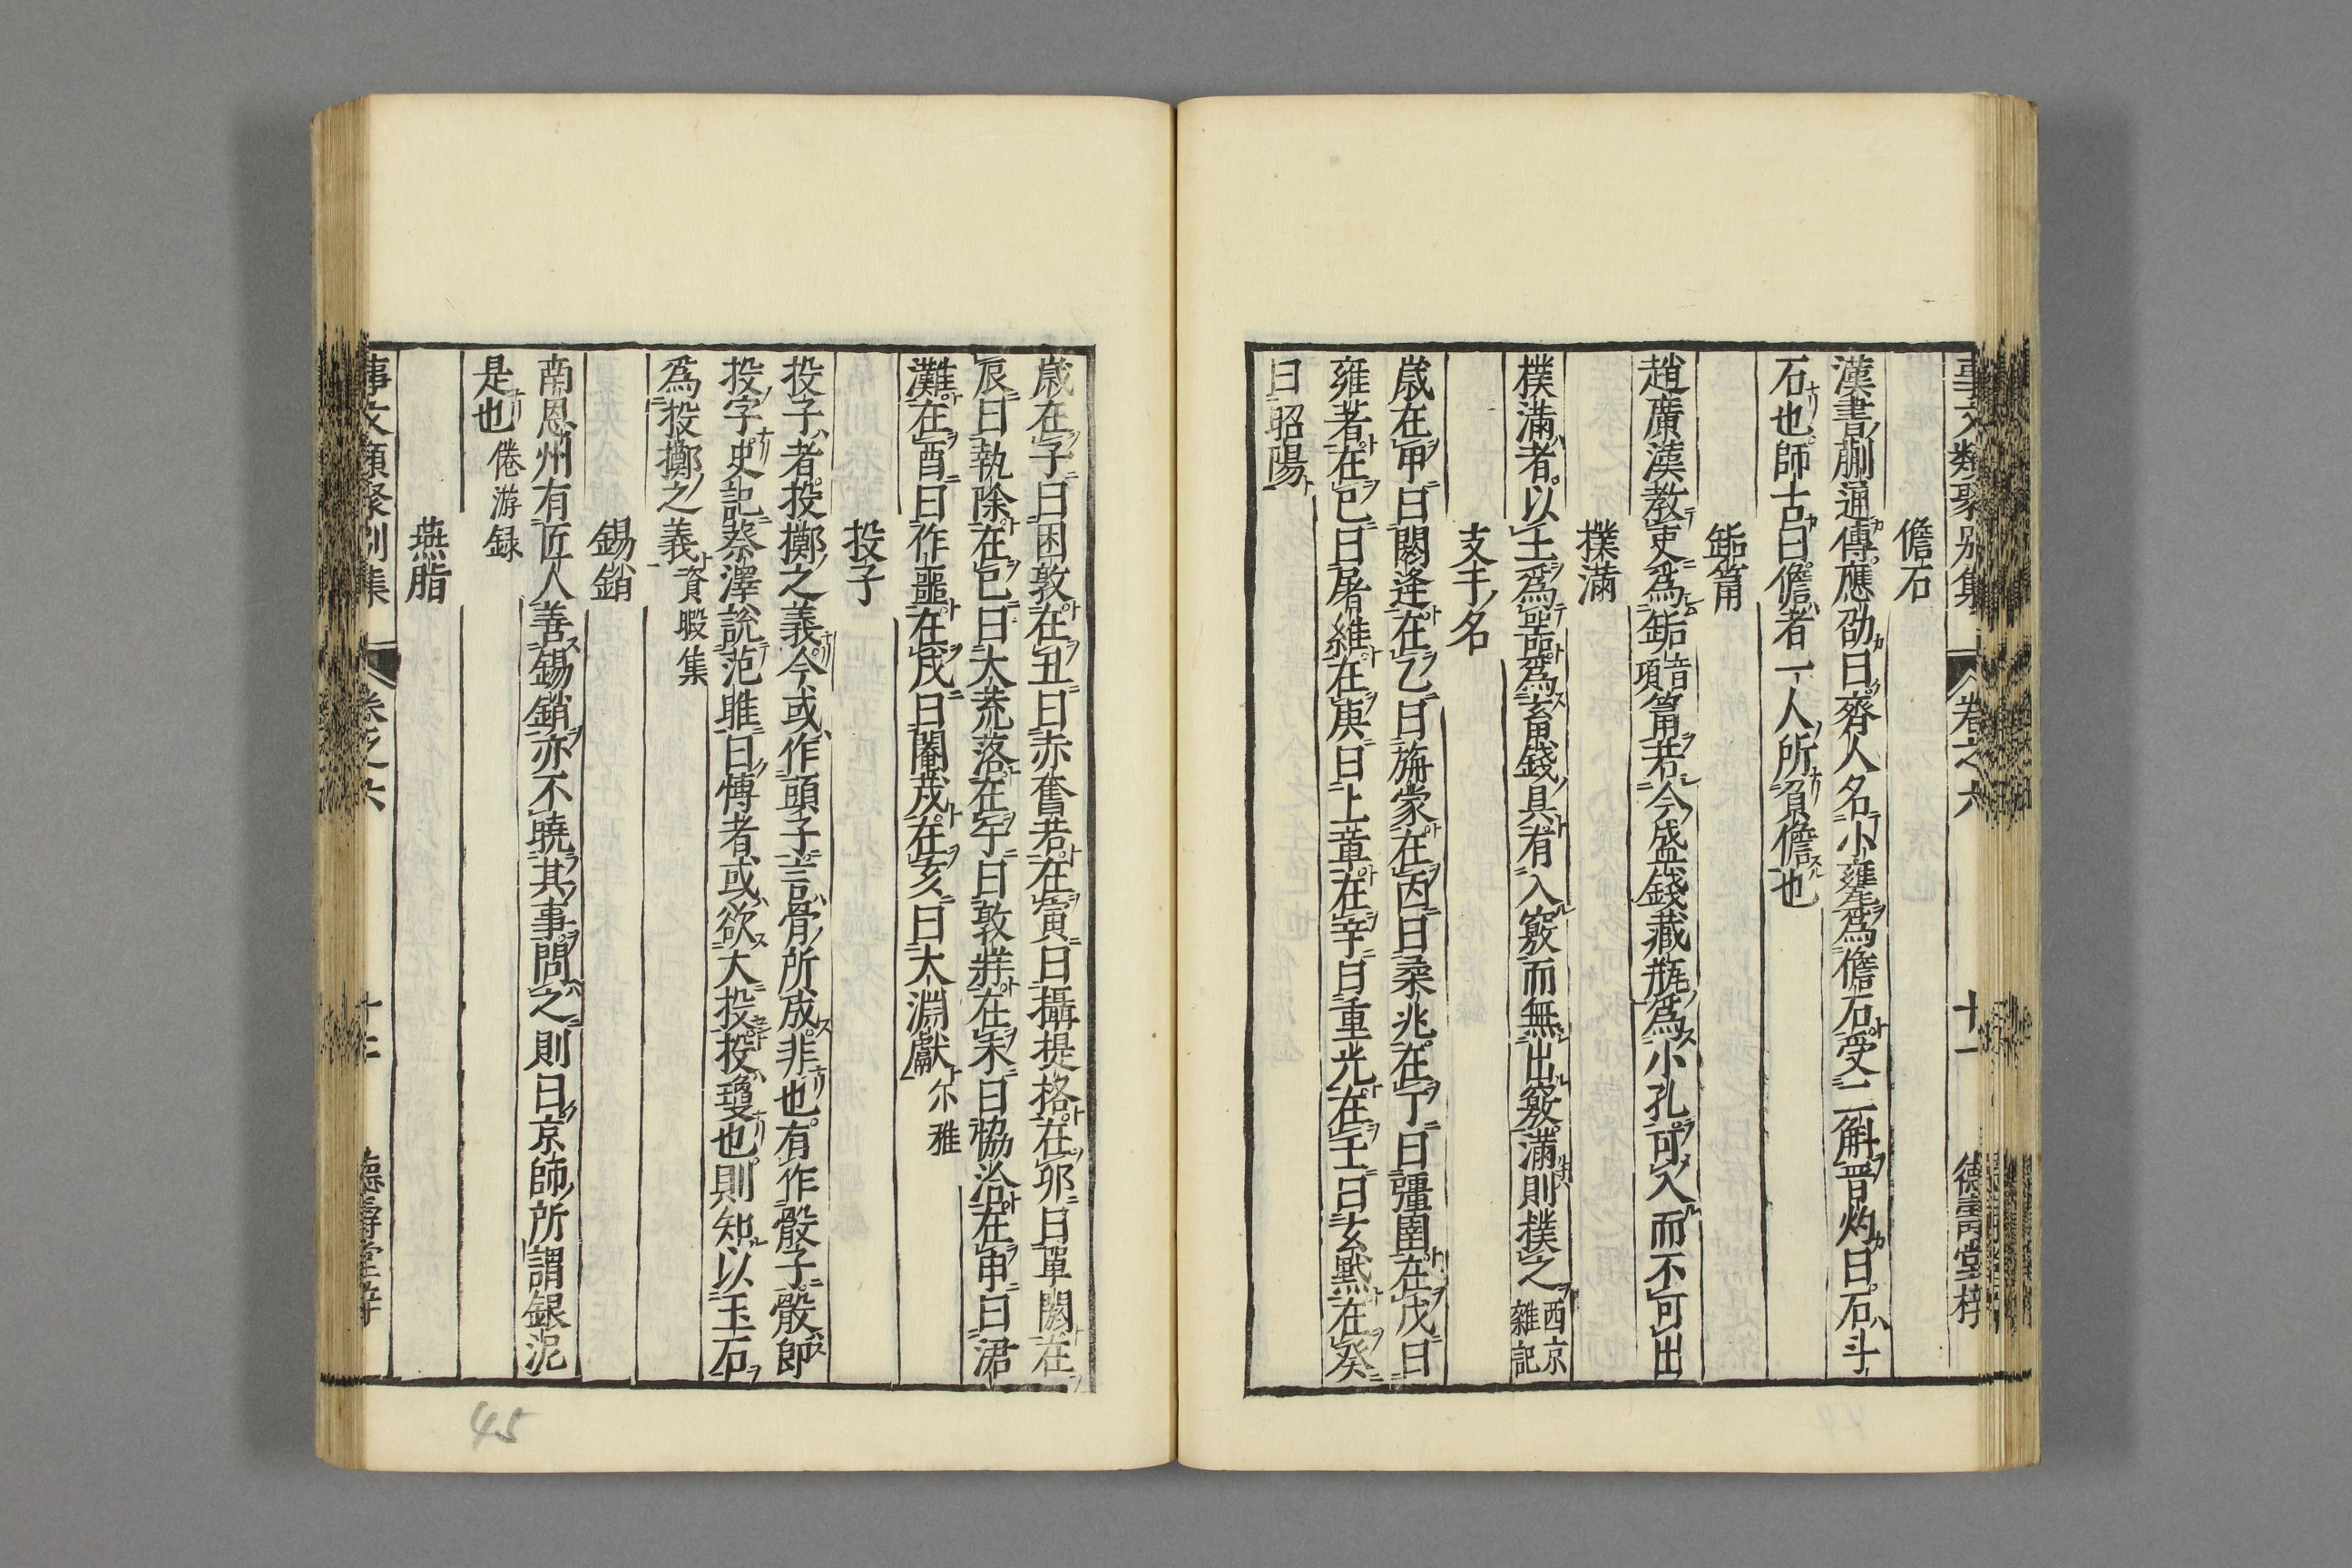 事文類聚別集 卷之六 十一 德壽堂梓
儋石
漢書蒯通傳應劭曰齊人名小甖爲儋石受二斛晋灼曰石斗
石也師古曰儋者一人所負儋也
缿筩
趙廣漢敎吏爲缿音項筩若今盛錢藏瓶爲小孔可入而不可出
撲滿
撲滿者以土爲噐爲畜錢具有入竅而無出竅滿則撲之西京雜記
支干名
歳在甲曰閼逢在乙曰旃蒙在丙曰柔兆在丁曰彊圉在戊曰
雍著在巳曰屠維在庚曰上章在辛曰重光在壬曰玄黓在癸
曰昭陽
歳在子曰困敦在丑曰赤奮若在寅曰攝提格在卯曰單閼在
辰曰執除在巳曰大荒落在午曰敦牂在未曰協洽在申曰涒
灘在酉曰作噩在戌曰閹茂在亥曰大淵獻尔雅
投子
投子者投擲之義今或作頭子言骨所成非也有作骰子骰即
投字史記蔡澤說范雎曰博者或欲大投投瓊也則知以玉石
爲投擲之義資暇集
錫銷
南恩州有匠人善錫銷亦不曉其事問之則曰京師所謂銀泥
是也倦游録
燕脂
事文類聚別集 卷之六 十二 德壽堂梓
45